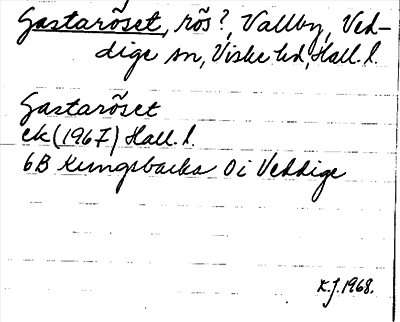 Gastaröset, rös?, Vallby, Ved-
dige sn, Viske hd, Hall. l.
Gastaröset
ek (1967) Hall. l.
6B Kungsbacka 0i Veddige
K.J. 1968.